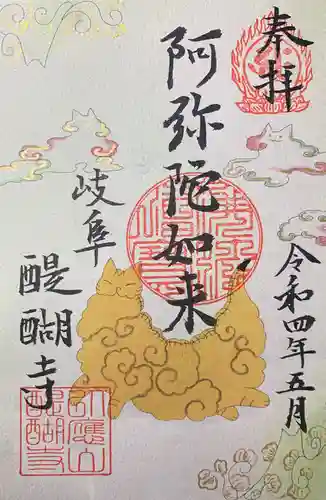 奉拝
阿弥陀如来
令和四年五月
岐阜
醍醐寺